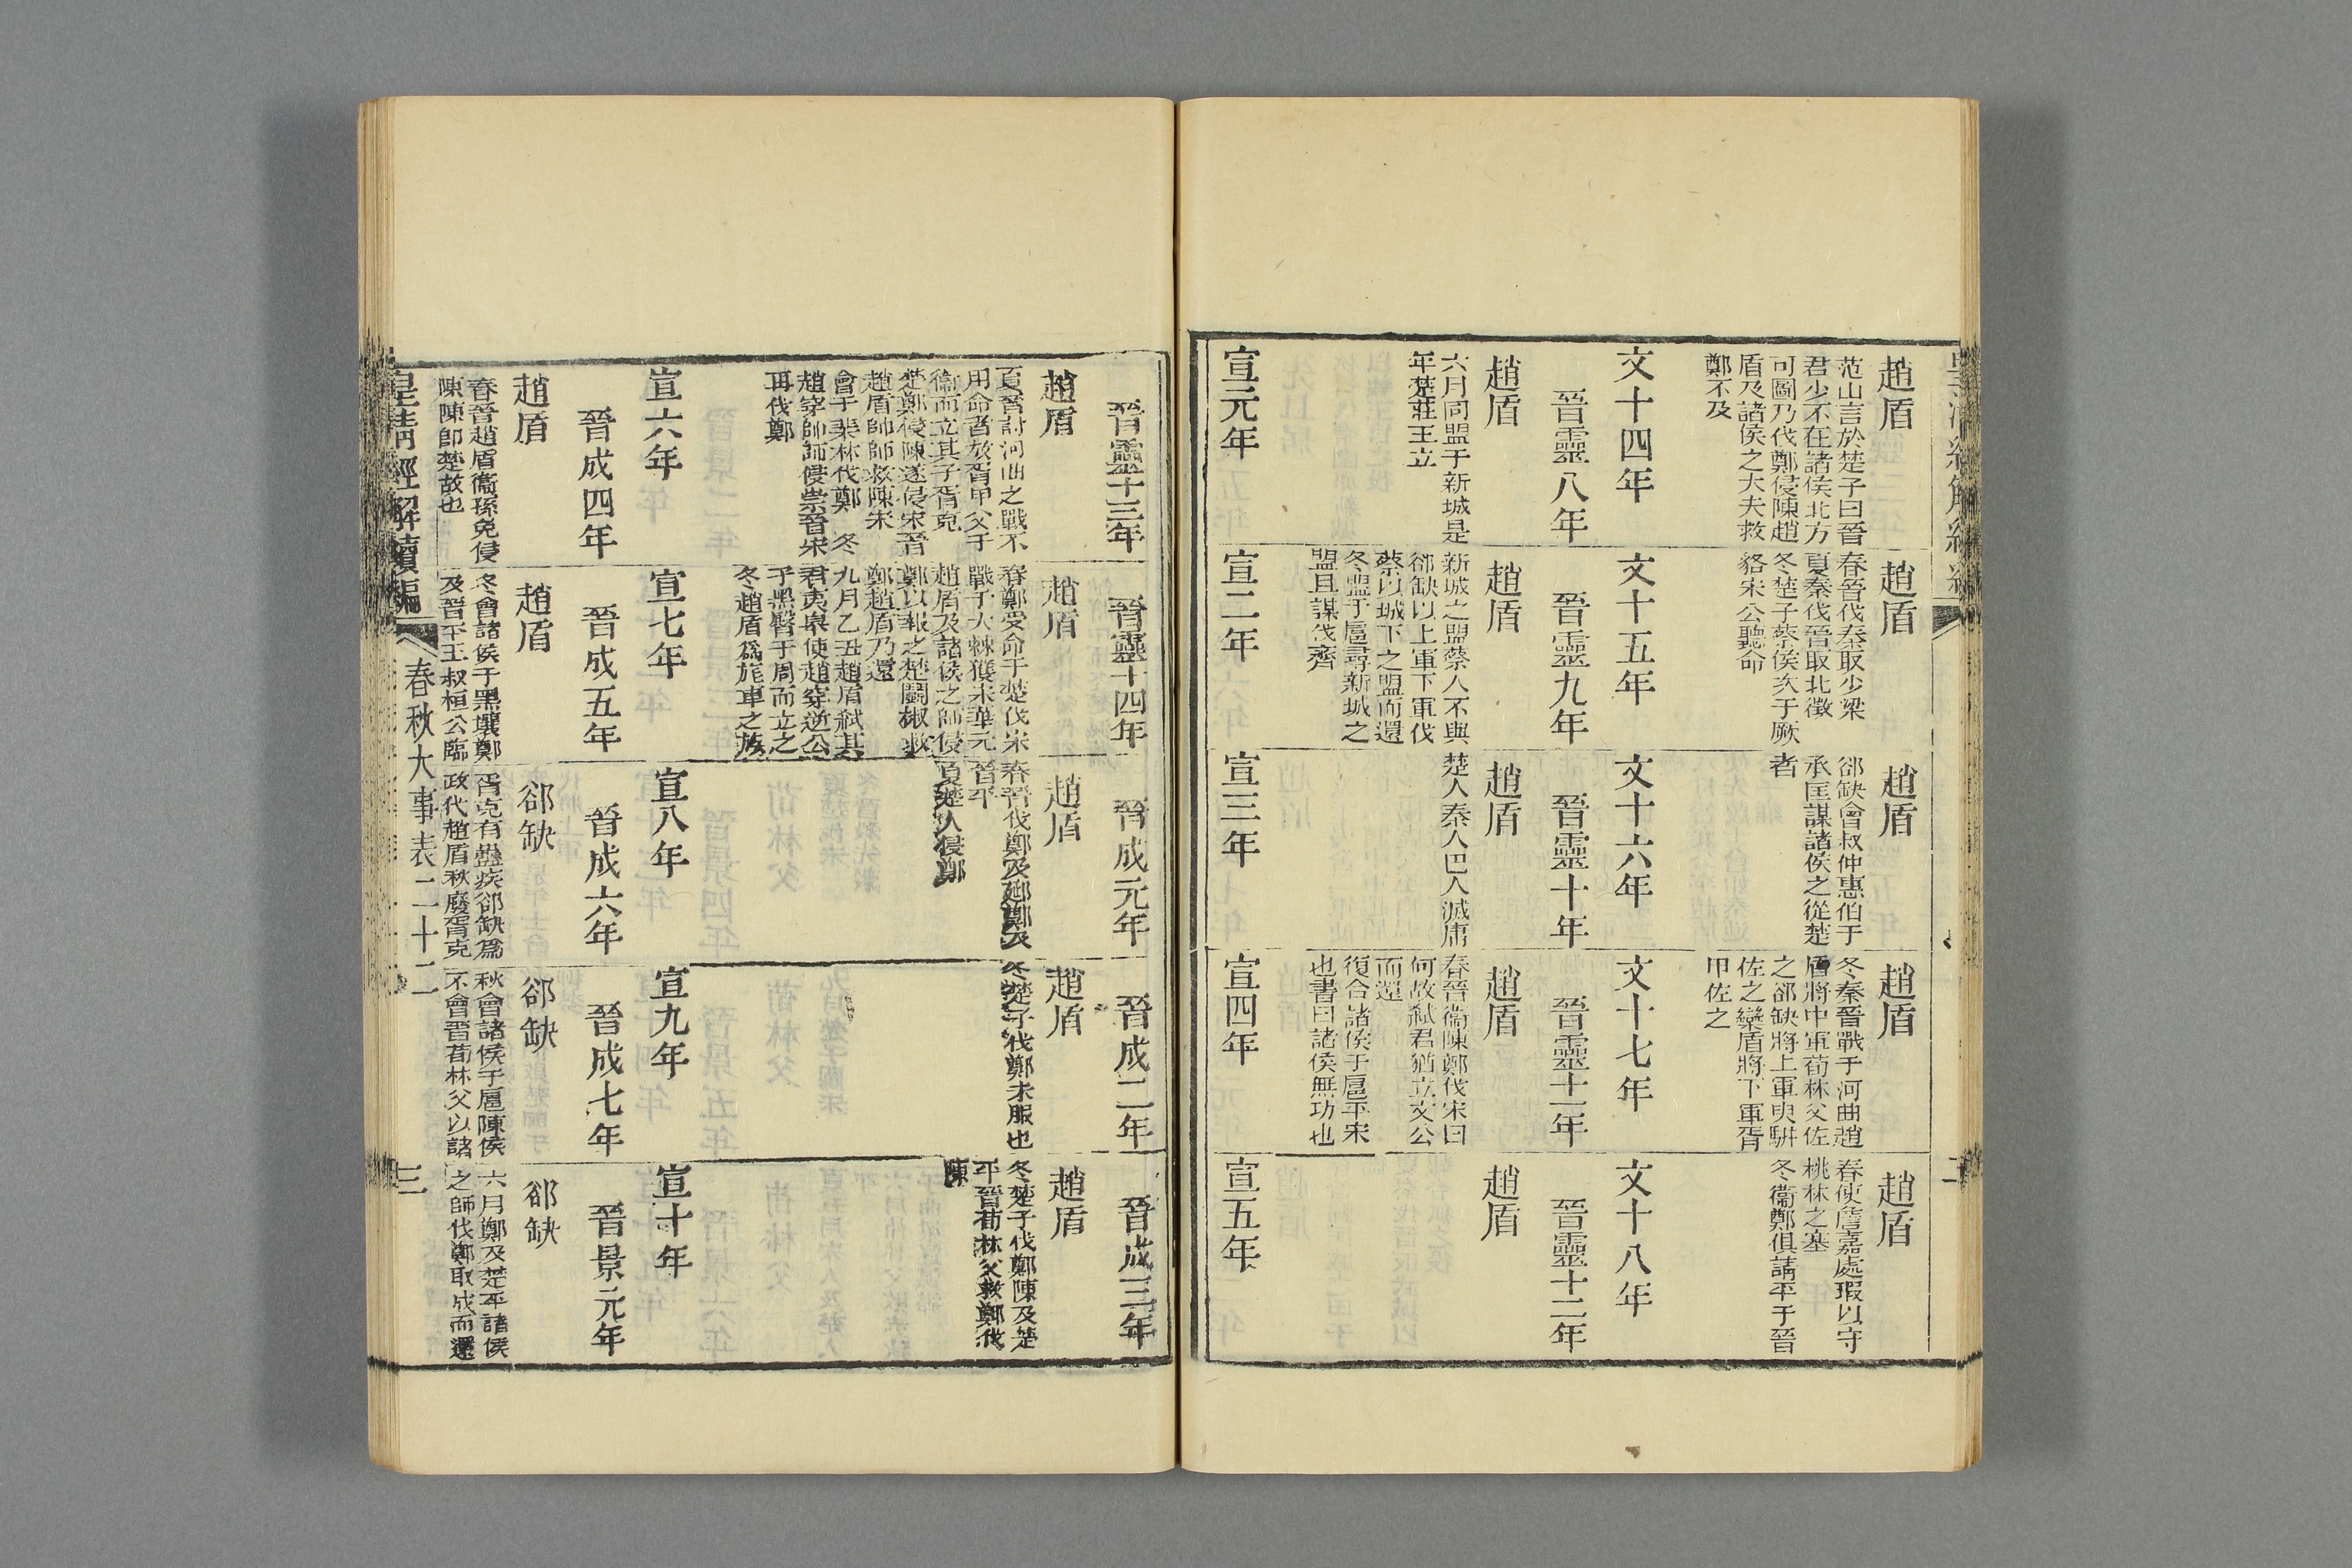 趙盾
范山言於楚子曰晉
君少不在諸侯北方
可圖乃伐鄭侵陳趙
盾及諸侯之大夫救
鄭不及
趙盾
春晉伐秦取少梁
夏秦伐晉取北徵
冬楚子蔡侯次于厥
貉宋公聽命
趙盾
郤缺會叔仲惠伯于
承匡謀諸侯之從楚
者
趙盾
冬秦晉戰于河曲趙
盾將中軍荀林父佐
之郤缺將上軍臾駢
佐之欒盾將下軍胥
甲佐之
趙盾
春使詹嘉處瑕以守
桃林之塞
冬衞鄭俱請平于晉
文十四年
晉靈八年
趙盾
六月同盟于新城是
年楚莊王立
文十五年
晉靈九年
趙盾
新城之盟蔡人不與
郤缺以上軍下軍伐
蔡以城下之盟而還
冬盟于扈尋新城之
盟且謀伐齊
文十六年
晉靈十年
趙盾
楚人秦人巴人滅庸
文十七年
晉靈十一年
趙盾
春晉衞陳鄭伐宋曰
何故弒君猶立文公
而還
復合諸侯于扈平宋
也書曰諸侯無功也
文十八年
晉靈十二年
趙盾
宣元年
宣二年
宣三年
宣四年
宣五年
晉靈十三年
趙盾
夏晉討河曲之戰不
用命者放胥甲父于
衞而立其子胥克
楚鄭侵陳遂侵宋晉
趙盾帥師救陳宋
會于棐林伐鄭 冬
趙穿帥師侵崇晉宋
再伐鄭
晉靈十四年
趙盾
春鄭受命于楚伐宋
戰于大棘獲宋華元
趙盾及諸侯之師侵
鄭以報之楚鬭椒救
鄭趙盾乃還
九月乙丑趙盾弒其
君夷皋使趙穿逆公
子黑臀于周而立之
冬趙盾爲旄車之族
晉成元年
趙盾
春晉伐鄭及郔鄭及
晉平
夏楚人侵鄭
晉成二年
趙盾
冬楚子伐鄭未服也
晉成三年
趙盾
冬楚子伐鄭陳及楚
平晉荀林父救鄭伐
陳
宣六年
晉成四年
趙盾
春晉趙盾衞孫免侵
陳陳卽楚故也
宣七年
晉成五年
趙盾
冬會諸侯于黑壤鄭
及晉平王叔桓公臨
宣八年
晉成六年
郤缺
胥克有蠱疾郤缺爲
政代趙盾秋廢胥克
宣九年
晉成七年
郤缺
秋會諸侯于扈陳侯
不會晉荀林父以諸
宣十年
晉景元年
郤缺
六月鄭及楚平諸侯
之師伐鄭取成而還
皇清經解續編
春秋大事表二十二
三